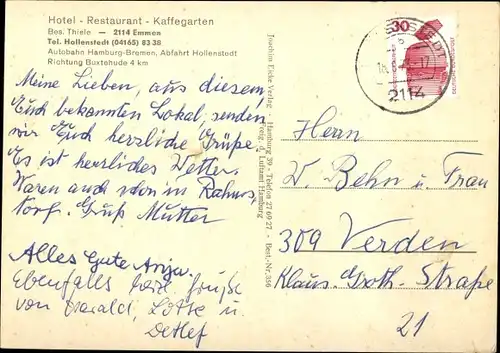 Hotel - Restaurant - Kaffegarten
Bes. Thiele — 2114 Emmen
Tel. Hollenstedt (04165) 83 38
Autobahn Hamburg-Bremen, Abfahrt Hollenstedt
Richtung Buxtehude 4 km
Meine Lieben, aus diesem,
Euch bekannten Lokal, senden
wir Euch herzliche Grüße.
Es ist herrliches Wetter.
Waren auch schon in Rahms-
torf. Gruß Mutter
Alles Gute
Ebenfalls herzl. Grüße
von Harald, Lotte u.
Detlef
Joachim Eicke Verlag - Hamburg 39 - Telefon 27 69 27 - Best.-Nr. 356
Freig. d. Luftamt Hamburg
30
DEUTSCHE BUNDESPOST
2114
Herrn
W. Behn u. Frau
309 Verden
Klaus-Groth-Straße
21